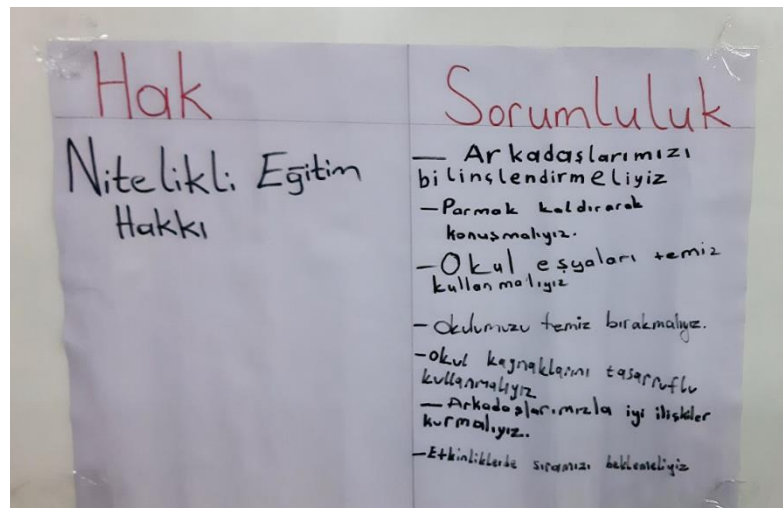 Hak
Nitelikli Eğitim
Hakkı
Sorumluluk
— Arkadaşlarımızı
bilinçlendirmeliyiz
- Parmak kaldırarak
konuşmalıyız.
- Okul eşyaları temiz
kullanmalıyız
- Okulumuzu temiz bırakmalıyız.
- Okul kaynaklarını tasarruflu
kullanmalıyız
- Arkadaşlarımızla iyi ilişkiler
kurmalıyız.
- Etkinliklerde sıramızı beklemeliyiz